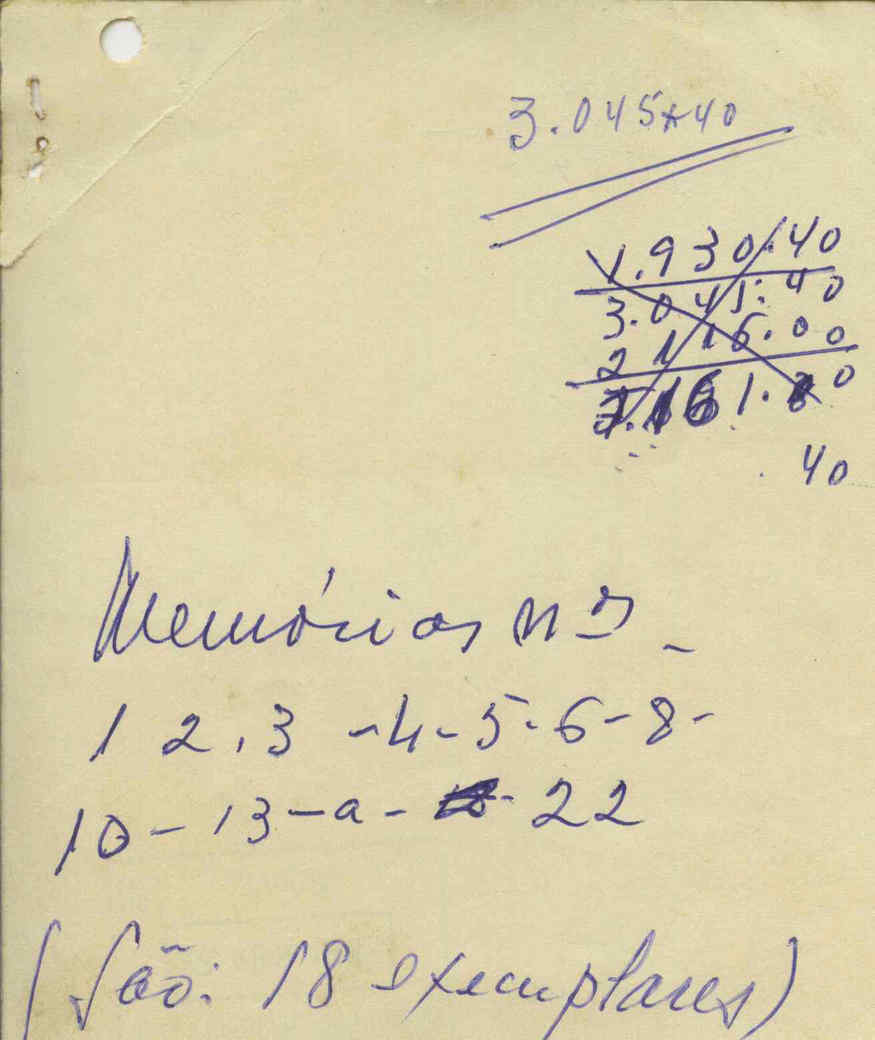 3.045,40
1.930.40
3.045.40
2 116.00
161.
40
Memórias nºs -
1 2.3 -4-5-6-8-
10-13-a- 22
(São: 18 exemplares)